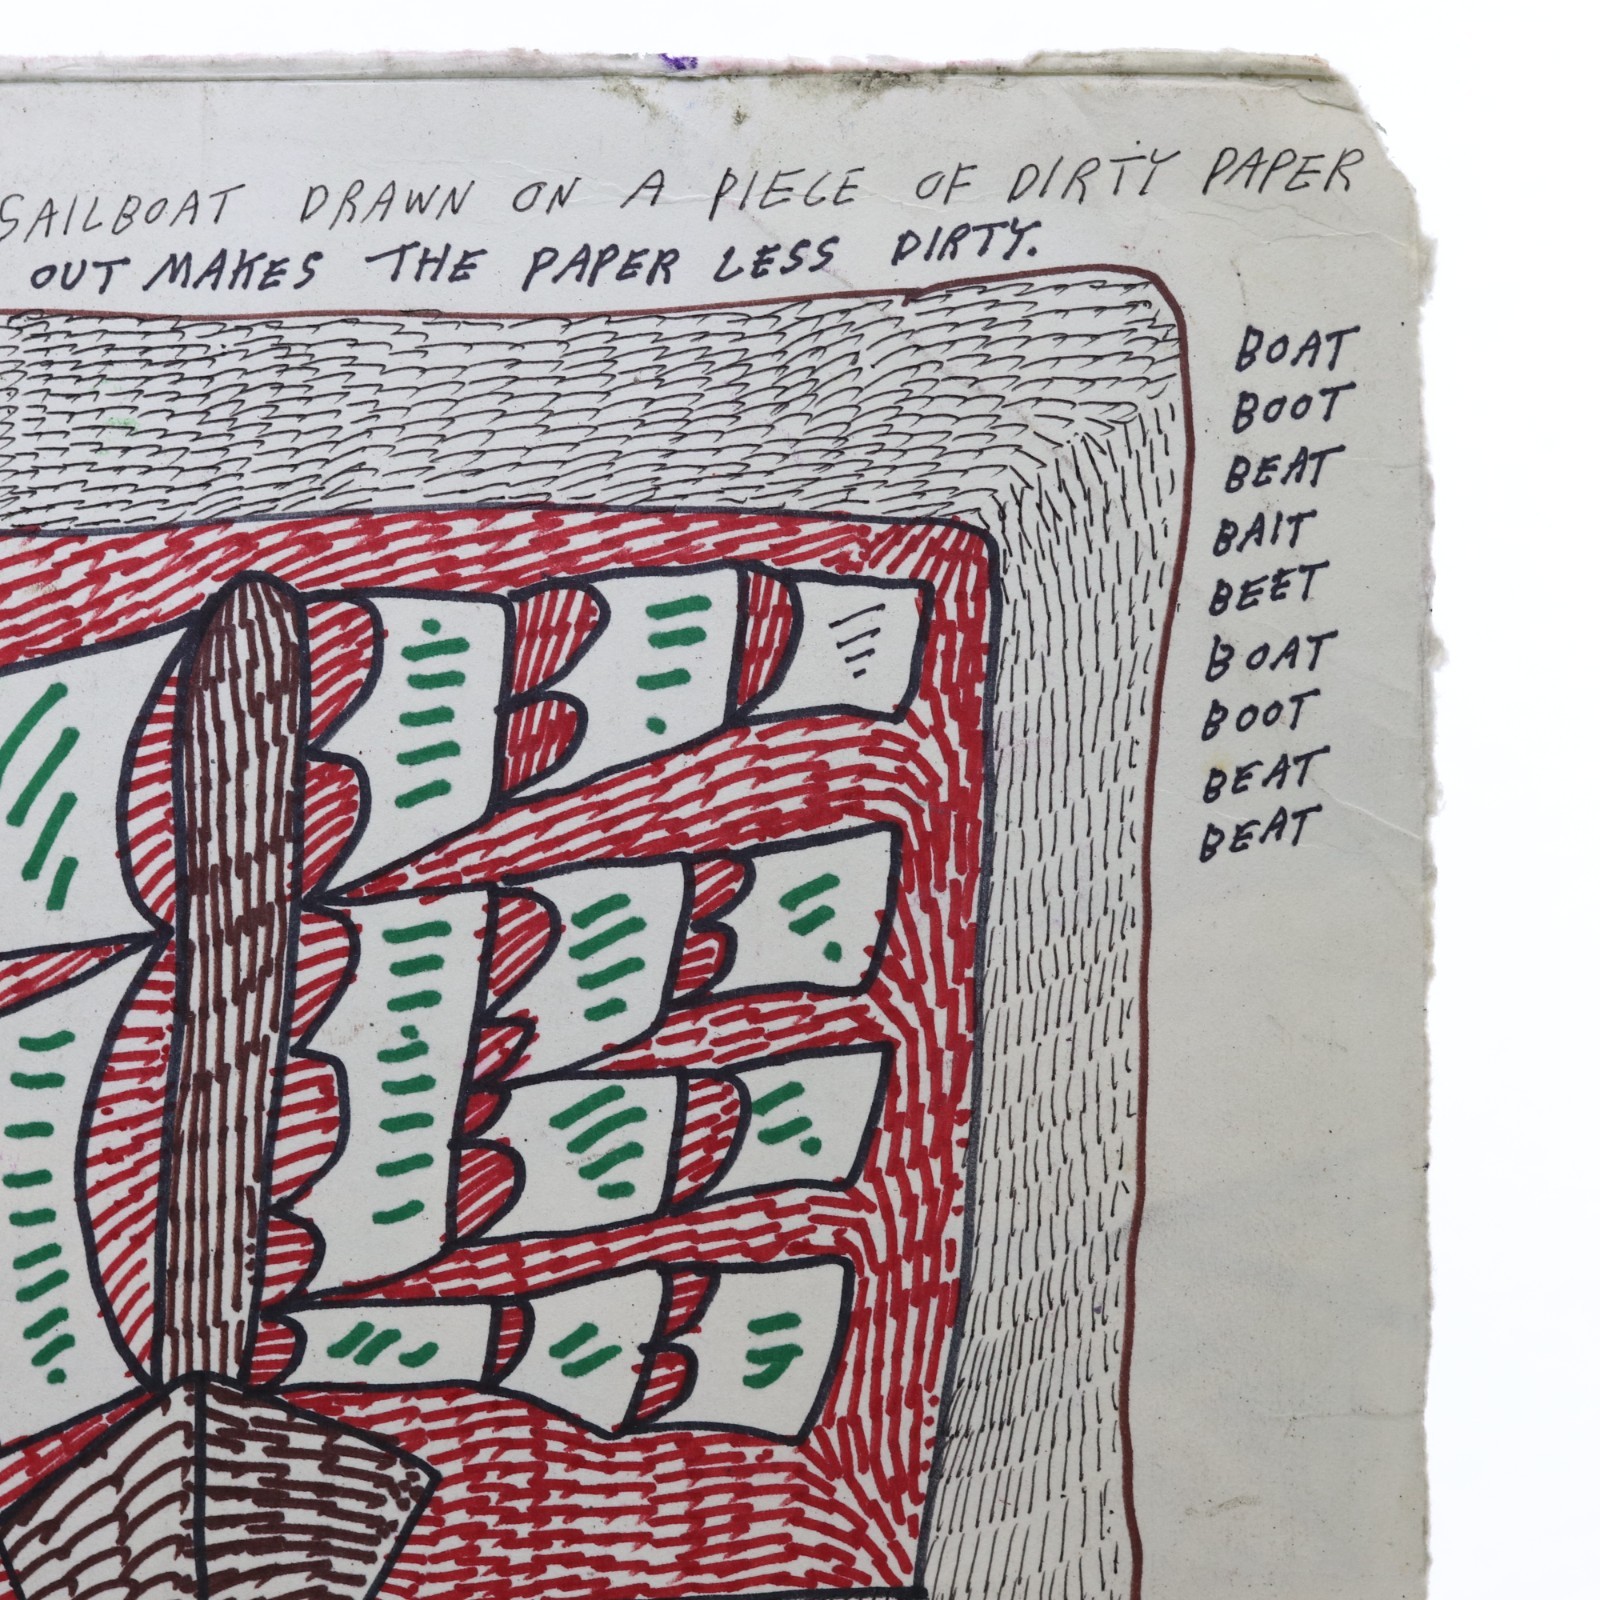 SAILBOAT DRAWN ON A PIECE OF DIRTY PAPER
OUT MAKES THE PAPER LESS DIRTY.
BOAT
BOOT
BEAT
BAIT
BEET
BOAT
BOOT
BEAT
BEAT